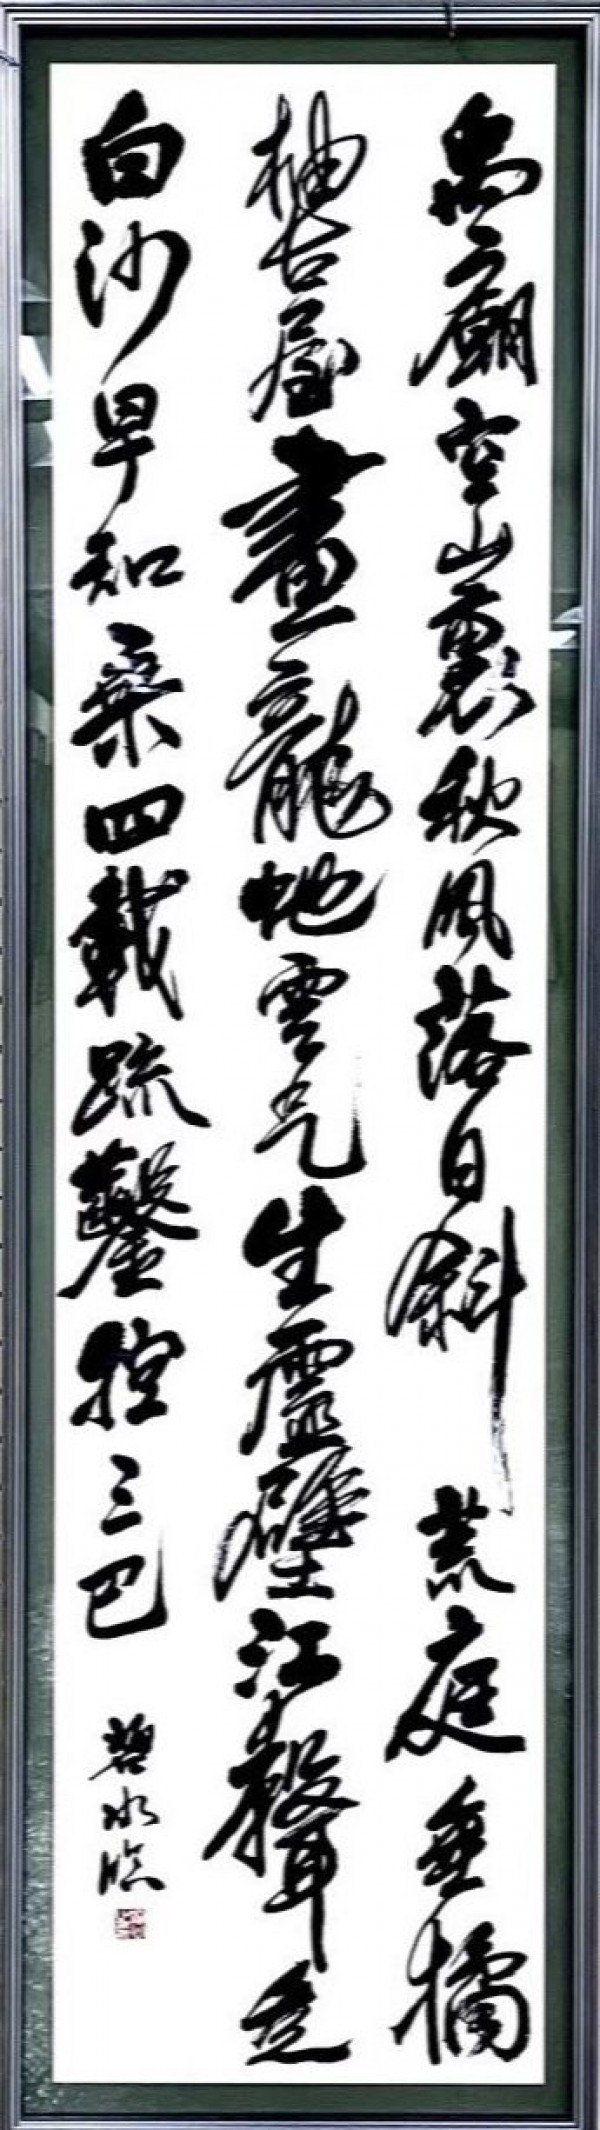 禹廟空山裏秋風落日斜 荒庭垂橘
柚古屋畫龍虵雲气生虛壁江聲走
白沙早知乘四載疏鑿控三巴 碧水臨